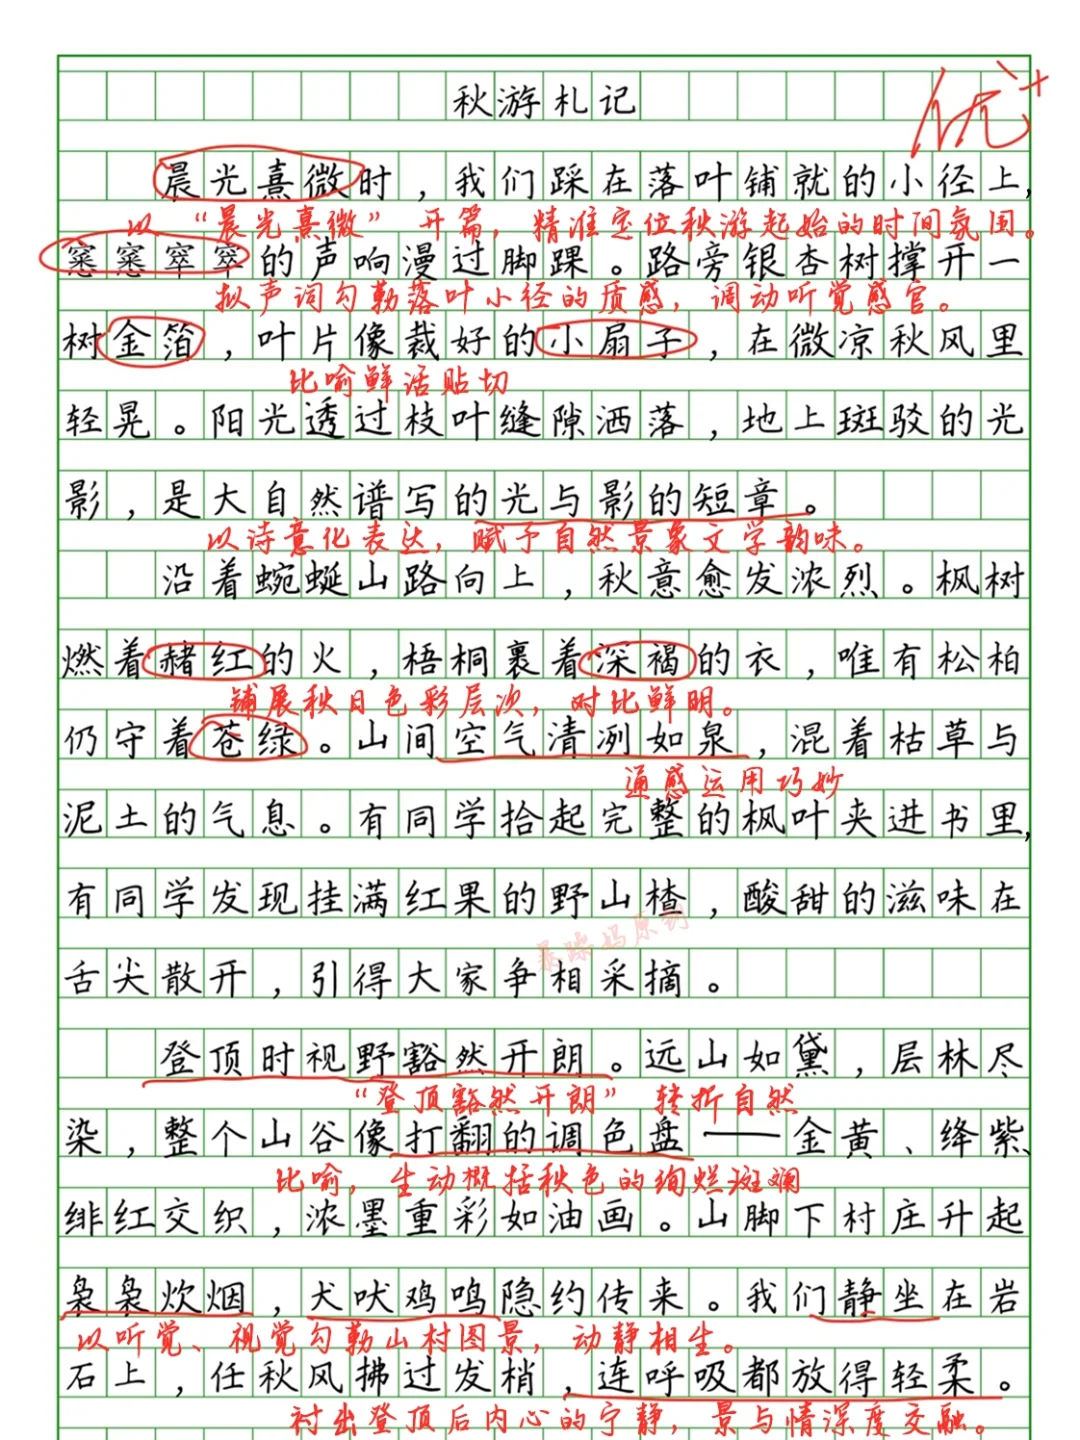 秋游札记
优+
晨光熹微时，我们踩在落叶铺就的小径上，
以“晨光熹微”开篇，精准定位秋游起始的时间氛围。
窸窸窣窣的声响漫过脚踝。路旁银杏树撑开一
拟声词勾勒落叶小径的质感，调动听觉感官。
树金箔，叶片像裁好的小扇子，在微凉秋风里
比喻鲜活贴切
轻晃。阳光透过枝叶缝隙洒落，地上斑驳的光
影，是大自然谱写的光与影的短章。
以诗意化表达，赋予自然景象文学韵味。
沿着蜿蜒山路向上，秋意愈发浓烈。枫树
燃着赭红的火，梧桐裹着深褐的衣，唯有松柏
铺展秋日色彩层次，对比鲜明。
仍守着苍绿。山间空气清冽如泉，混着枯草与
通感运用巧妙
泥土的气息。有同学拾起完整的枫叶夹进书里，
有同学发现挂满红果的野山楂，酸甜的滋味在
舌尖散开，引得大家争相采摘。
登顶时视野豁然开朗。远山如黛，层林尽
“登顶豁然开朗”转折自然
染，整个山谷像打翻的调色盘——金黄、绛紫、
比喻，生动概括秋色的绚烂斑斓
绯红交织，浓墨重彩如油画。山脚下村庄升起
袅袅炊烟，犬吠鸡鸣隐约传来。我们静坐在岩
以听觉、视觉勾勒山村图景，动静相生。
石上，任秋风拂过发梢，连呼吸都放得轻柔。
衬出登顶后内心的宁静，景与情深度交融。